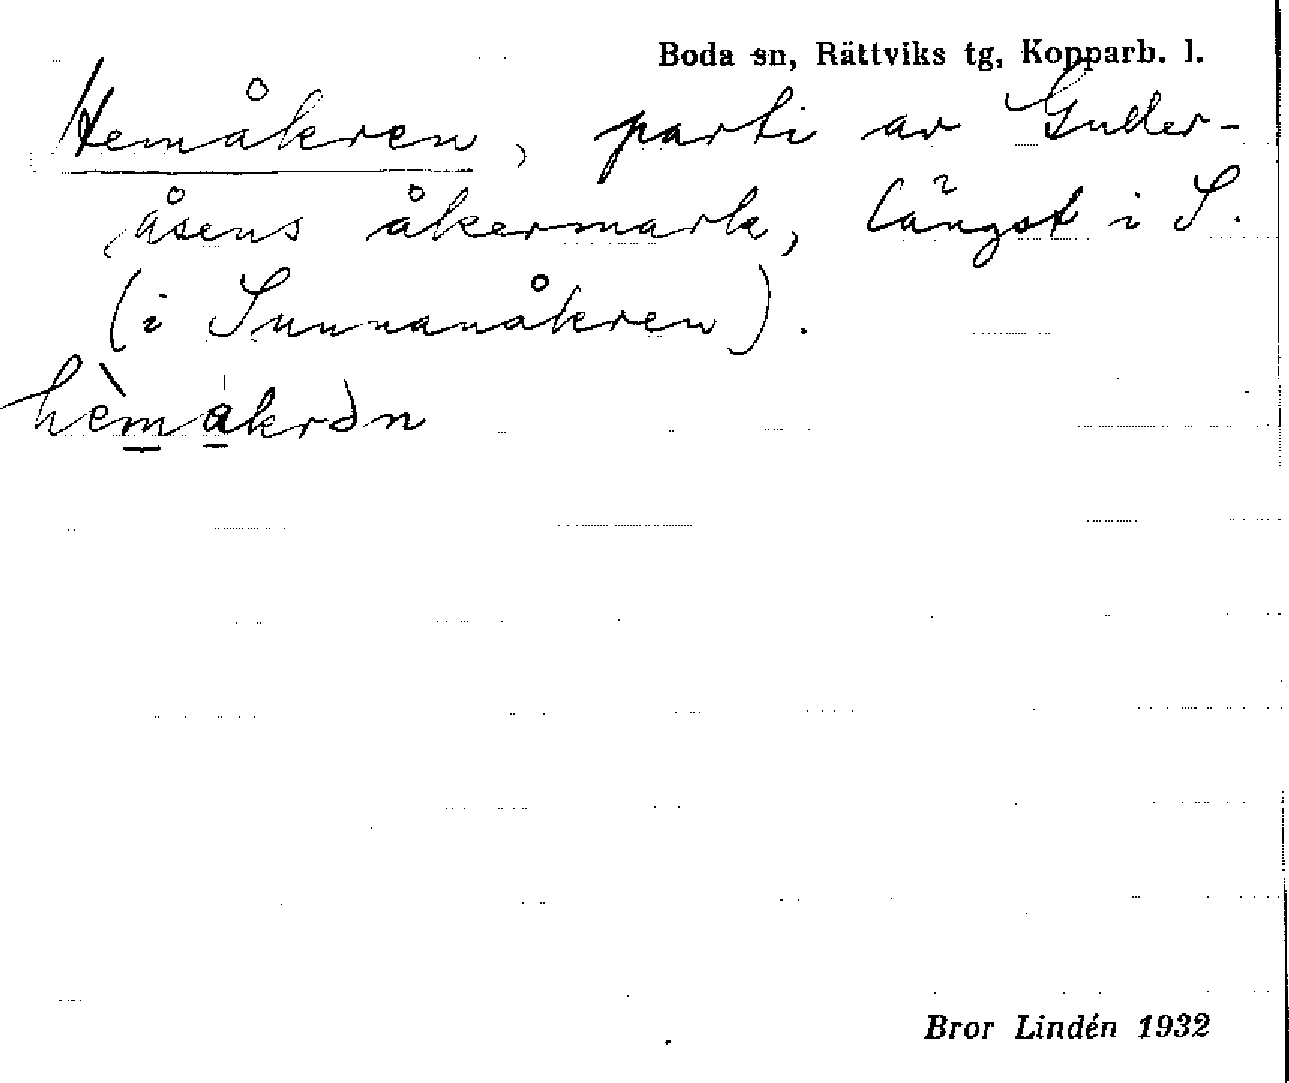 Boda sn, Rättviks tg, Kopparb. l.
Hemåkren, parti av Guller-
åsens åkermark, längst i S.
(i Sunnanåkren).
hèmákrən
Bror Lindén 1932